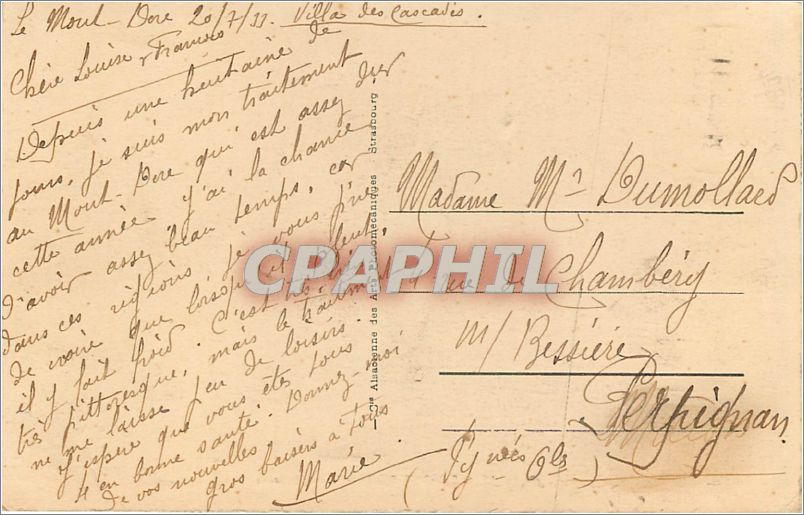 Le Mont-Dore 20/7/33. Villa des Cascades.
Chère Louise & Francois
Depuis une huitaine de
jours, je suis mon traitement
au Mont-Dore qui est assez dur
cette année. j'ai la chance
d'avoir assez beau temps, car
dans ces régions je vous prie
de croire que lorsqu'il pleut,
il y fait froid. C'est très,
très pittoresque, mais le traitement
ne me laisse peu de loisirs.
J'espère que vous êtes tous
4 en bonne santé. Donnez-moi
de vos nouvelles
gros baisers à tous
Marie
Cie Alsacienne des Arts Photomécaniques Strasbourg
CPAPHIL
Madame Mn Dumollard
rue de Chambéry
m/ Bessière
Perpignan
(Pynées Ols)